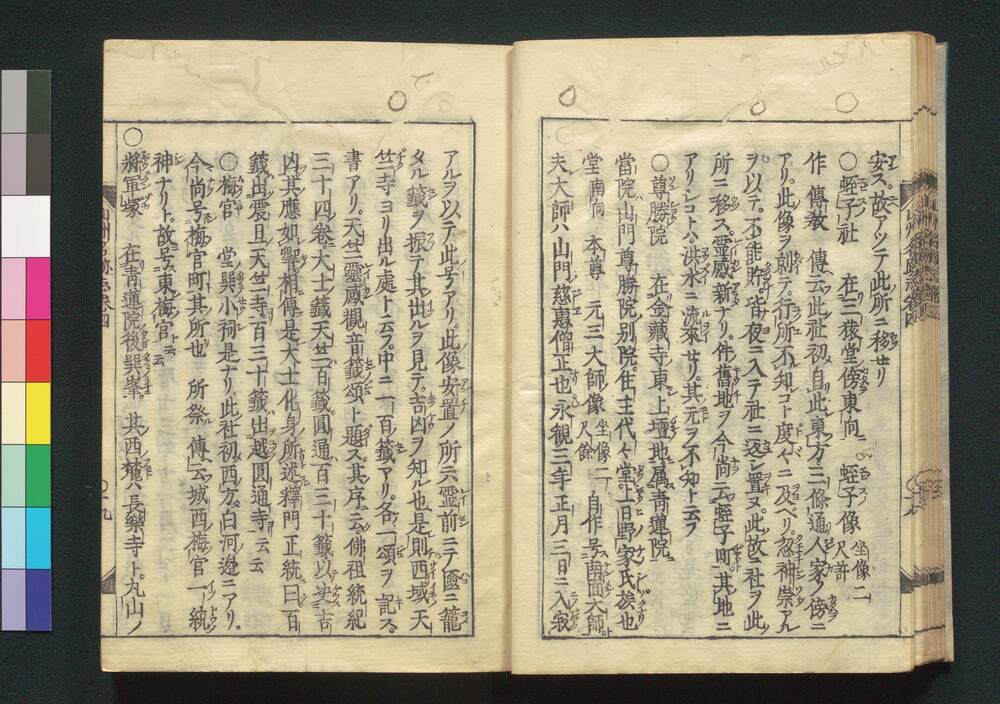 安ス。故アツテ此所ニ移せリ
○蛭子社 在三猿堂傍東向 蛭子像 坐像二尺許
作 傳教 傳云此社初自此東方三條通人家ノ傍ニ
アリ。此像ヲ剥テ行所不知コト度々ニ及ベリ。忽神祟アル
ヲ以テ。不能貯皆夜ニ入テ社ニ返シ置ヌ。此故ニ社ヲ此
所ニ移ス。霊感新ナリ。件舊地ヲ今尚云蛭子町其地ニ
アリシコトハ洪水ニ流來せリ其元ヲ不知ト云フ
○尊勝院 在金藏寺東上壇地属青蓮院
當院山門尊勝院別院。住主代々堂上日野家氏族也
堂 南向 本尊 元三大師像 坐像二尺餘 自作号面大師。
夫大師ハ山門慈惠僧正也永観三年正月三日ニ入寂
アルヲ以テ此号アリ。此像安置ノ所六霊前ニテ匳ニ籠
タル籤ヲ振テ其出ルヲ見テ吉凶ヲ知ル也是則西域天
竺寺ヨリ出ル處ト云フ。中ニ一百籤アリ。各一頌ヲ記ス。
書アリ。天竺靈感觀音籤頌ト題ス。其序云佛祖統紀
三十四卷。大士籤天竺百籤圓通百三十籤以決吉
凶其應如響相傳是大士化身所述釋門正統曰百
籤出震旦天竺寺百三十籤出越圓通寺云云
○梅宮 堂巽小祠是ナリ。此社初西方白河邊ニアリ。
今尚号梅宮町其所也 所祭傳云城西梅宮一統
神ナリト。故号東梅宮云云
○將軍塚 在青蓮院後巽峯。其西麓ハ長樂寺ト。丸山ノ
山州名跡志卷四
○九